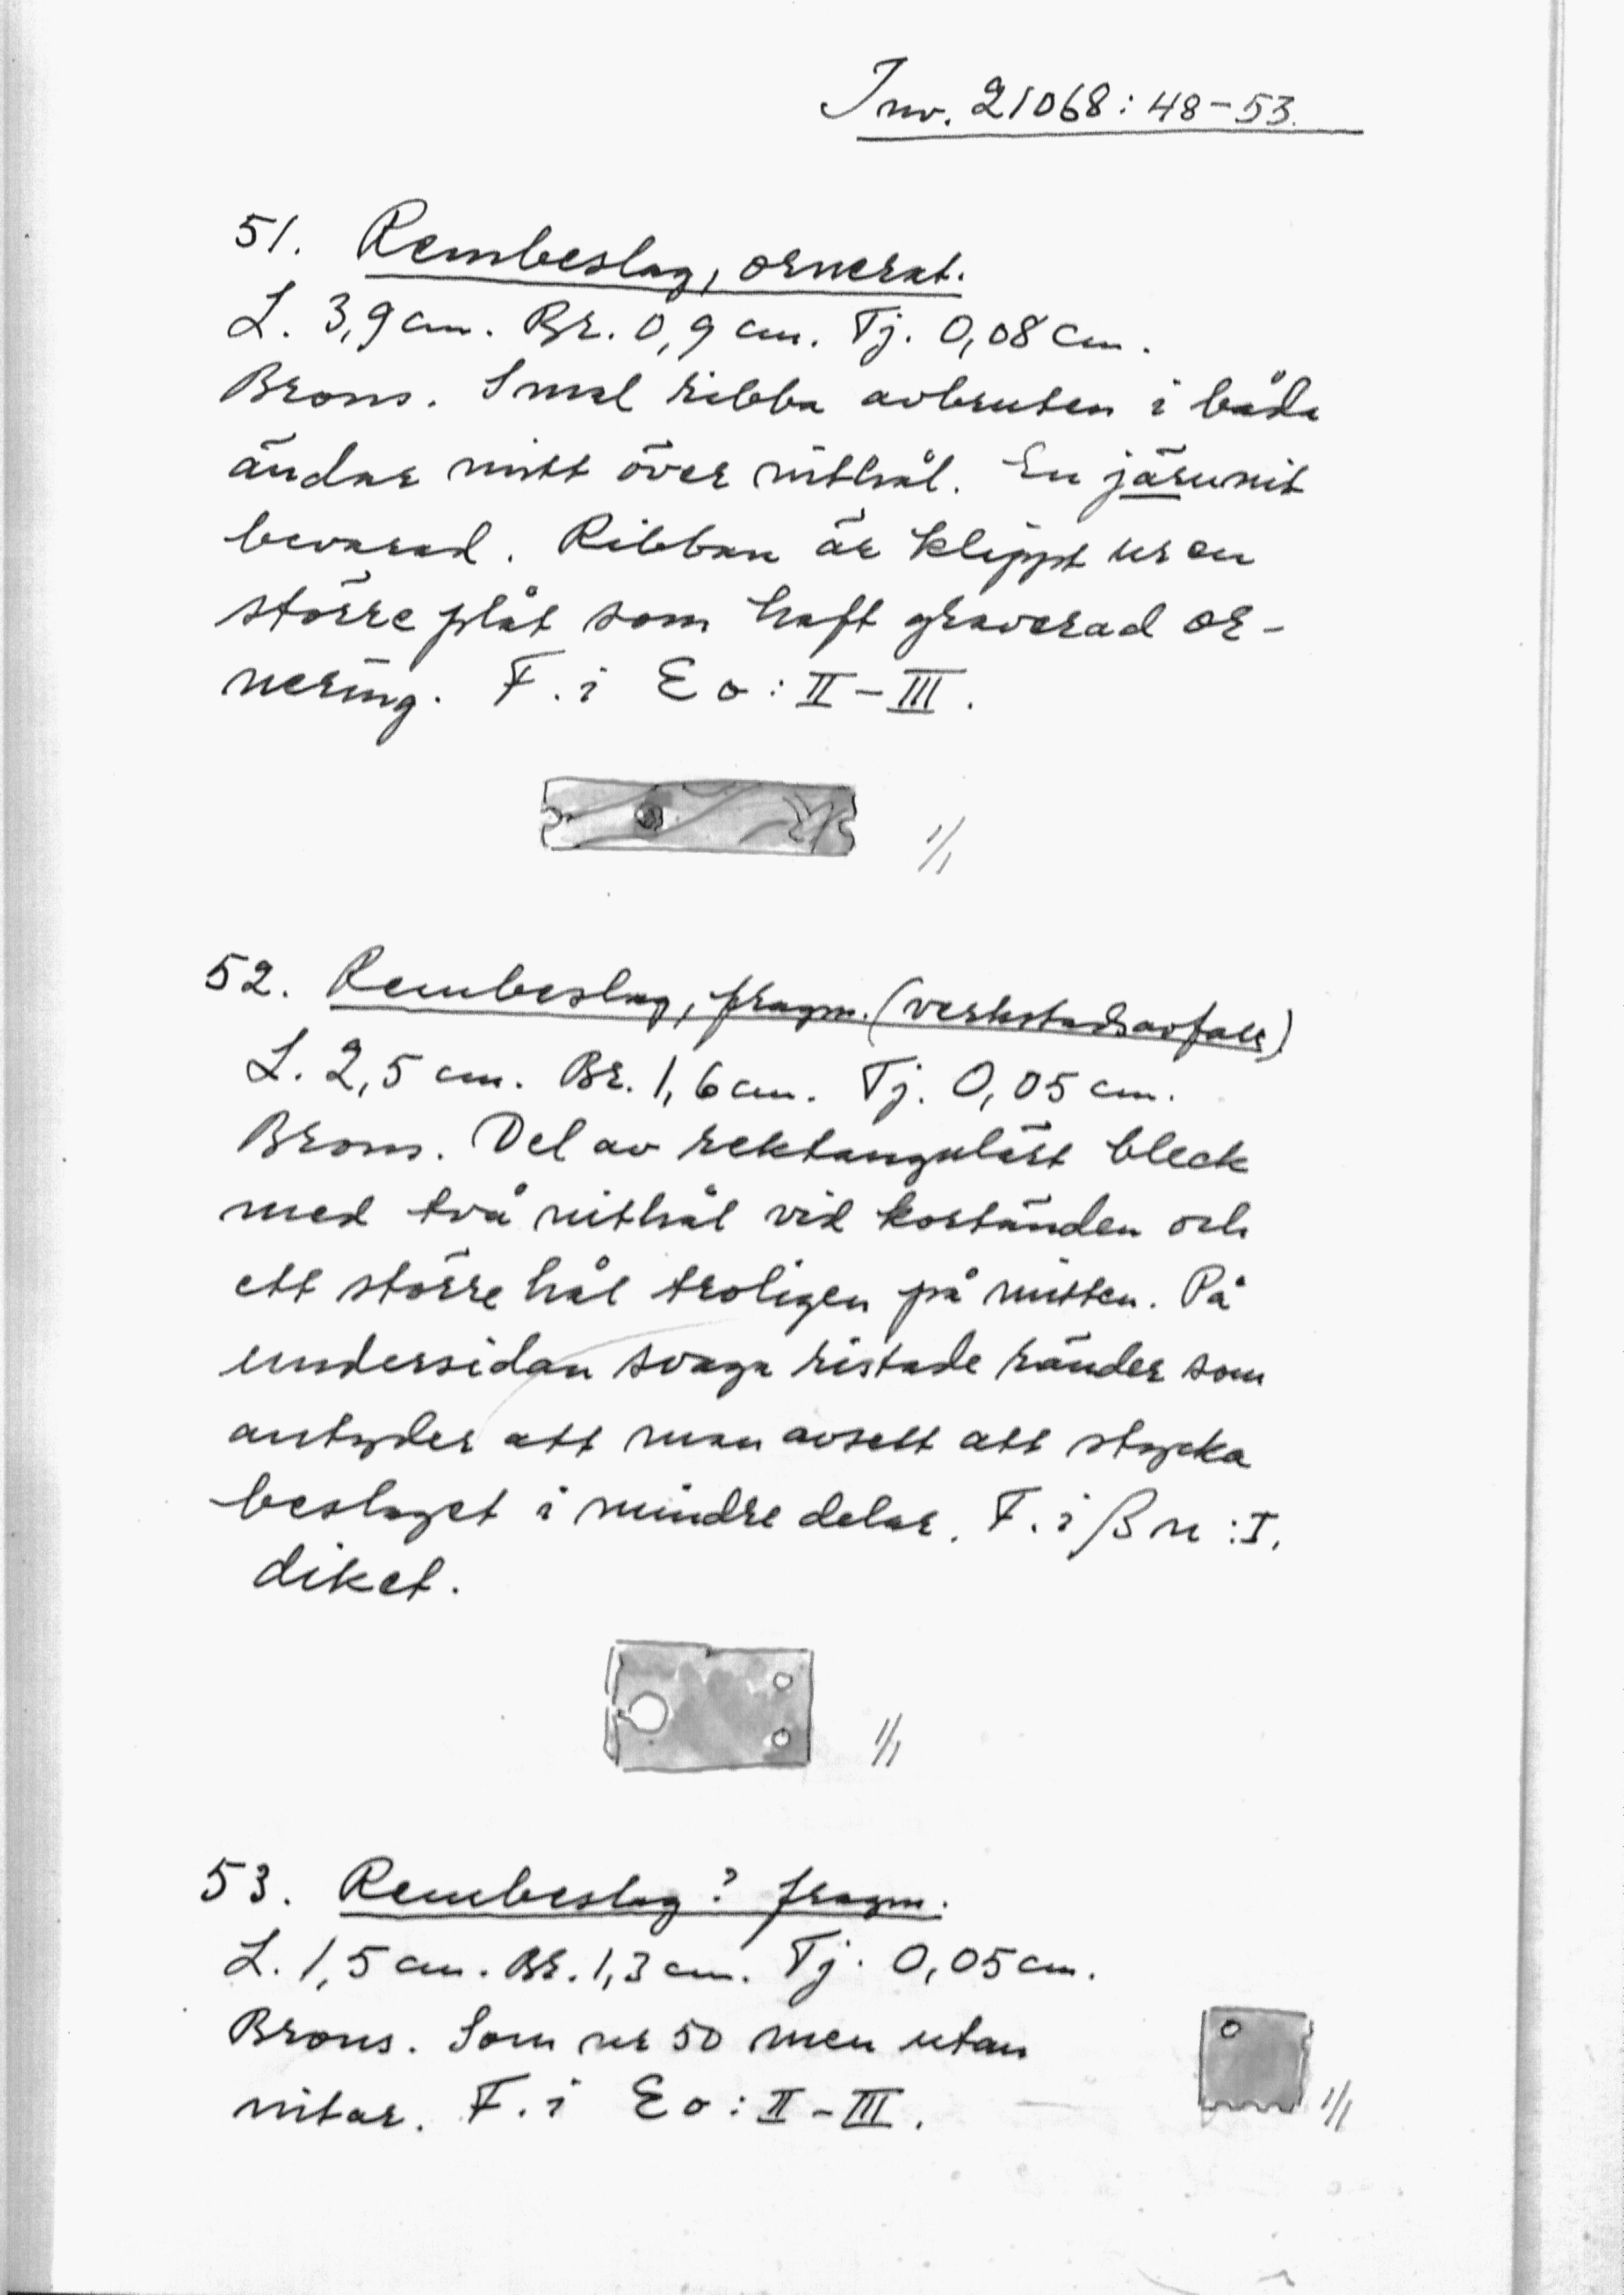 Inv. 21068:48-53.
51. Rembeslag, ornerat.
L. 3,9 cm. Br. 0,9 cm. Tj. 0,08 cm.
Brons. Smal ribba avbruten i båda
ändar mitt över nithål. En järnnit
bevarad. Ribban är klippt ur en
större plåt som haft graverad or-
nering. F. i Eo: II-III.
1/1
52. Rembeslag, fragm. (verkstadsavfall)
L. 2,5 cm. Br. 1,6 cm. Tj. 0,05 cm.
Brons. Del av rektangulärt bleck
med två nithål vid kortänden och
ett större hål troligen på mitten. På
undersidan svaga ristade ränder som
antyder att man avsett att stycka
beslaget i mindre delar. F. i βn: I.
diket.
1/1
53. Rembeslag? fragm.
L. 1,5 cm. Br. 1,3 cm. Tj. 0,05 cm.
Brons. Som nr 50 men utan
nitar. F. i Eo: II-III.
1/1